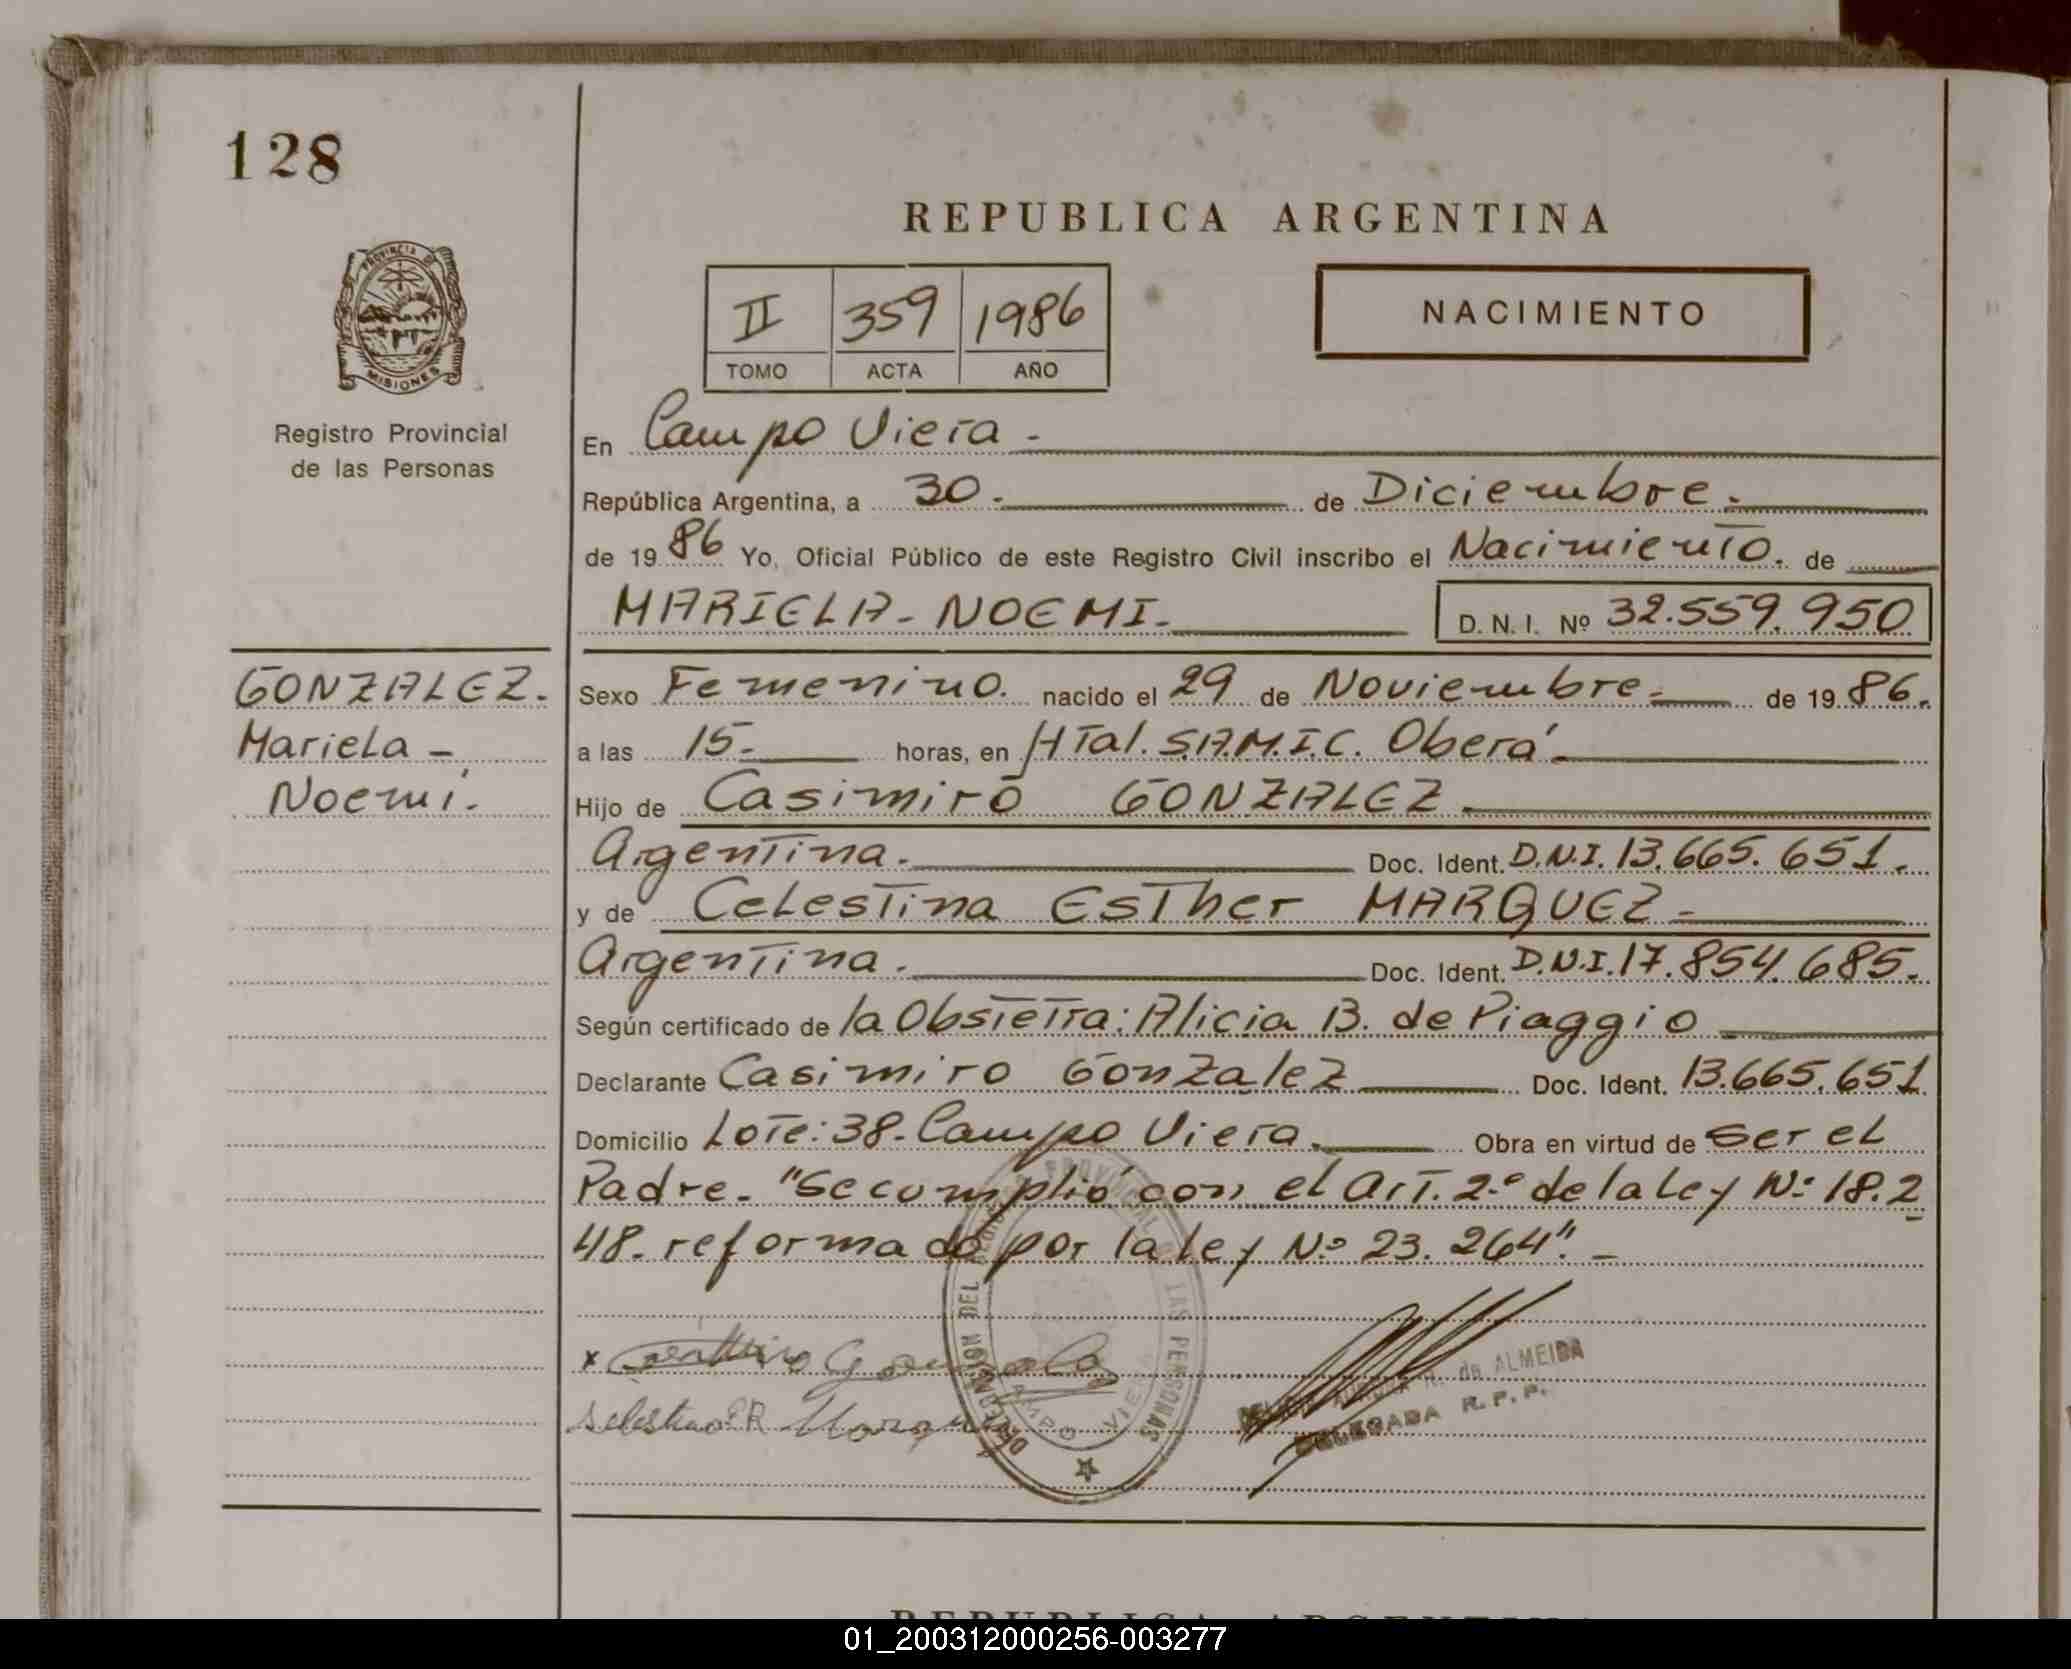 128
REPUBLICA ARGENTINA
PROVINCIA DE
MISIONES
Registro Provincial
de las Personas
II 359 1986
TOMO ACTA AÑO
NACIMIENTO
En Campo Viera.
República Argentina, a 30. de Diciembre.
de 1986 Yo, Oficial Público de este Registro Civil inscribo el Nacimiento. de
MARIELA - NOEMI. D. N. I. Nº 32.559.950
GONZALEZ.
Mariela -
Noemi.
Sexo Femenino. nacido el 29 de Noviembre. de 1986.
a las 15. horas, en HTal. S.A.M.I.C. Oberá.
Hijo de Casimiro GONZALEZ.
Argentina. Doc. Ident. D.N.I. 13.665.651.
y de Celestina Esther MARQUEZ -
Argentina. Doc. Ident. D.N.I. 17.854.685.
Según certificado de la Obstetra: Alicia B. de Piaggio
Declarante Casimiro Gonzalez Doc. Ident. 13.665.651
Domicilio Lote: 38. Campo Viera. Obra en virtud de ser el
Padre. "Se cumplió con el Art. 2.º de la Ley Nº 18.2
48. reformado por la Ley N.º 23.264". -
x
DELEGACION DEL REGISTRO PROVINCIAL DE LAS PERSONAS
CAMPO VIERA
de ALMEIDA
DELEGADA R. P. P.
REPUBLICA ARGENTINA
01_200312000256-003277